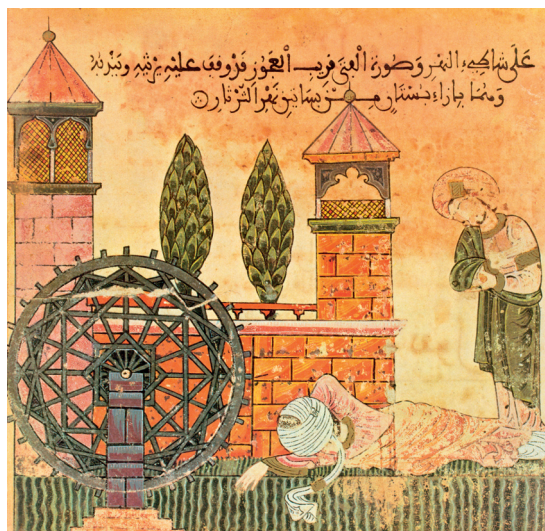 عَلَى شاطِىءِ النهر وَصُورَة الْفتى قريب الْعَجُوز قد وقف عَلَيْهِ يرثيه ويندبه
وهما بازاء بستان من بساتين نهر الثرثار